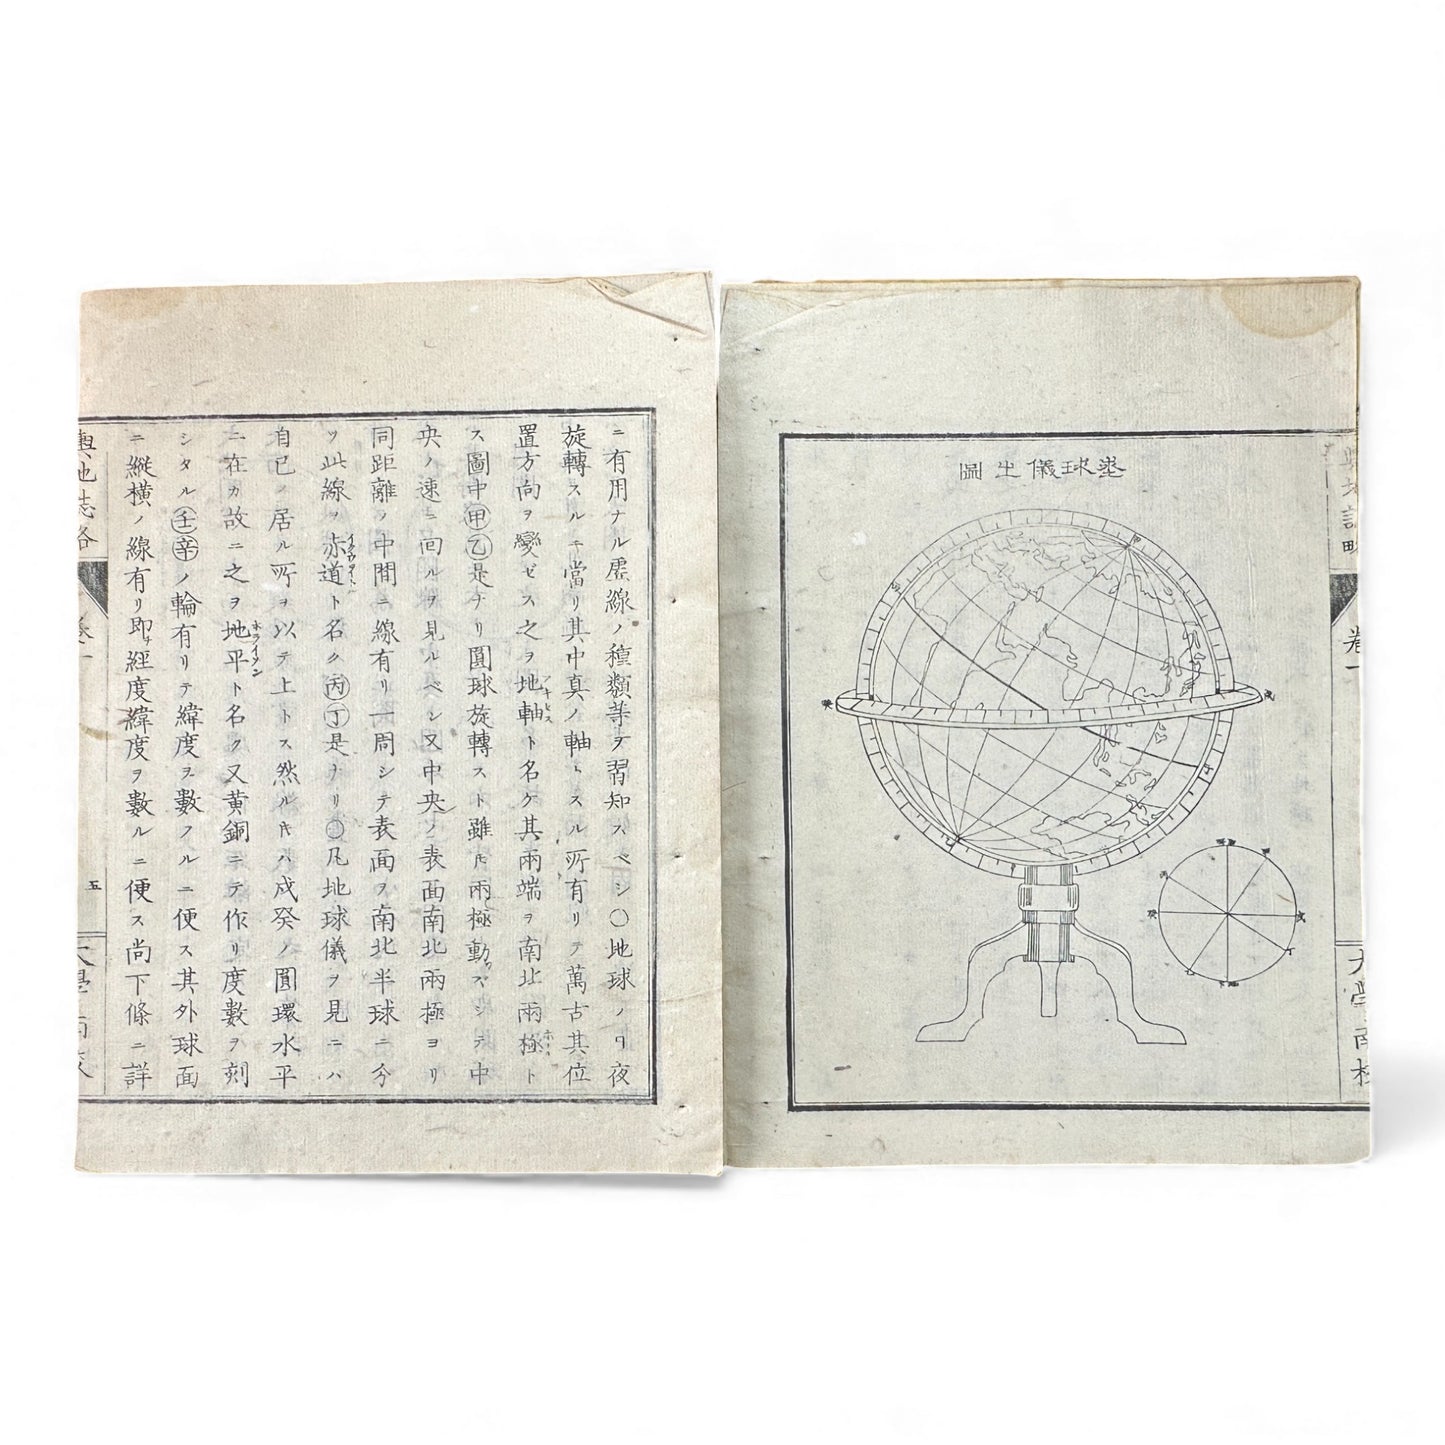 地球儀之圖
輿地誌略
卷一
大學南校
ニ有用ナル虚線ノ種類等ヲ習知スベシ〇地球ノ日夜
旋轉スルニ當リ其中真ノ軸トスル所有リテ萬古其位
置方向ヲ變ゼス之ヲ地軸ト名ケ其兩端ヲ南北兩極ト
ス圖中甲乙是ナリ圓球旋轉スト雖𪜈兩極動カズシテ中
央ノ速ニ回ルヲ見ルベシ又中央ノ表面南北兩極ヨリ
同距離ノ中間ニ線有リ一周シテ表面ヲ南北半球ニ分
ツ此線ヲ赤道ト名ク丙丁是ナリ〇凡地球儀ヲ見ニハ
自己ノ居ル所ヲ以テ上トス然ル𪜈ハ戌癸ノ圓環水平
ニ在カ故ニ之ヲ地平ト名ク又黄銅ニテ作リ度數ヲ刻
シタル壬辛ノ輪有リテ緯度ヲ數フルニ便ス其外球面
ニ縱横ノ線有リ即チ經度緯度ヲ數ルニ便ス尚下條ニ詳
輿地誌略
卷一
五
大學南校